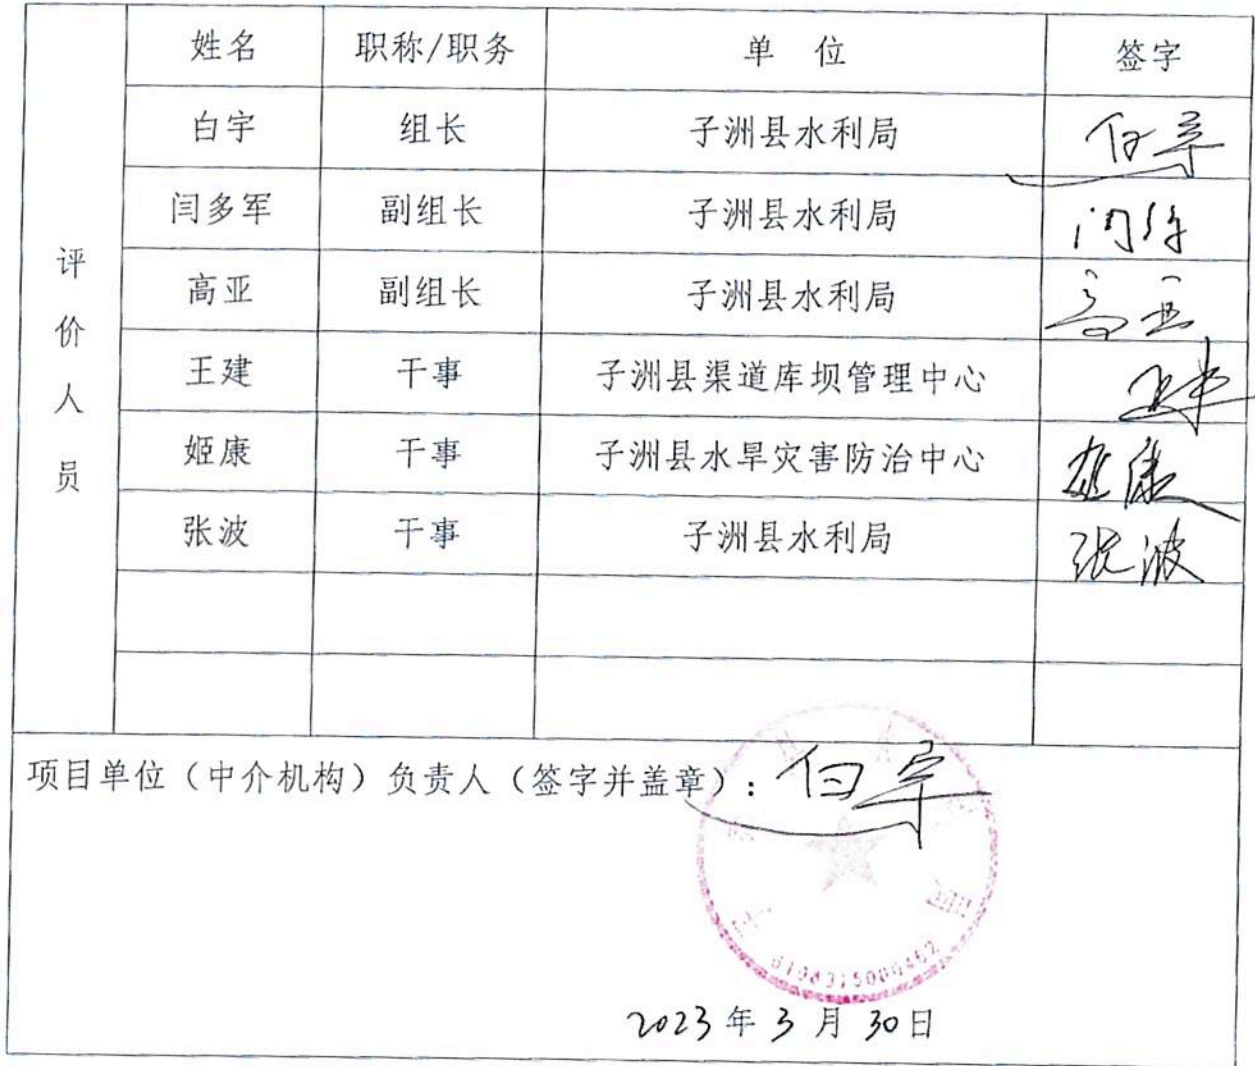 姓名 职称/职务 单 位 签字
评价人员
白宇 组长 子洲县水利局 白宇
闫多军 副组长 子洲县水利局
高亚 副组长 子洲县水利局 高亚
王建 干事 子洲县渠道库坝管理中心 王建
姬康 干事 子洲县水旱灾害防治中心 姬康
张波 干事 子洲县水利局 张波
项目单位（中介机构）负责人（签字并盖章）：白宇
2023年3月30日